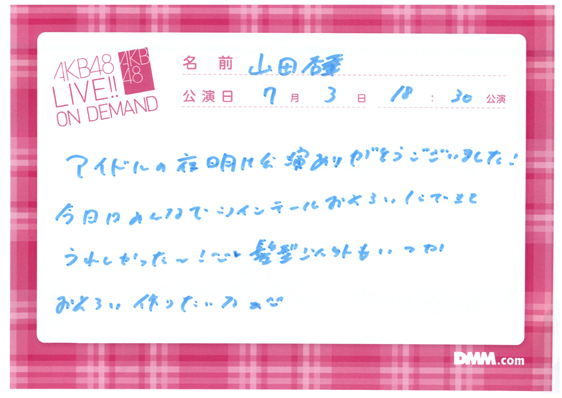 AKB48
LIVE!!
ON DEMAND
AKB
48
名前 山田杏華
公演日 7月 3日 18:30公演
アイドルの夜明け公演ありがとうございました!
今日はみんなでツインテールおそろいにできて
うれしかった〜!♡ 髪型以外もいつか
おそろい作りたいカ
DMM.com